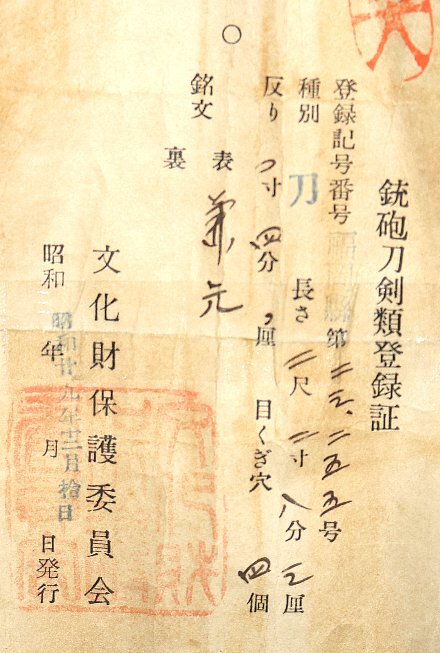 銃砲刀剣類登録証
登録記号番号 第二三、二五五号
種別 刀 長さ 二尺二寸八分 厘
反り 寸四分 厘 目くぎ穴 四個
銘文 表 兼元
裏
文化財保護委員会
昭和 年 月 日発行
昭和廿九年十二月拾日